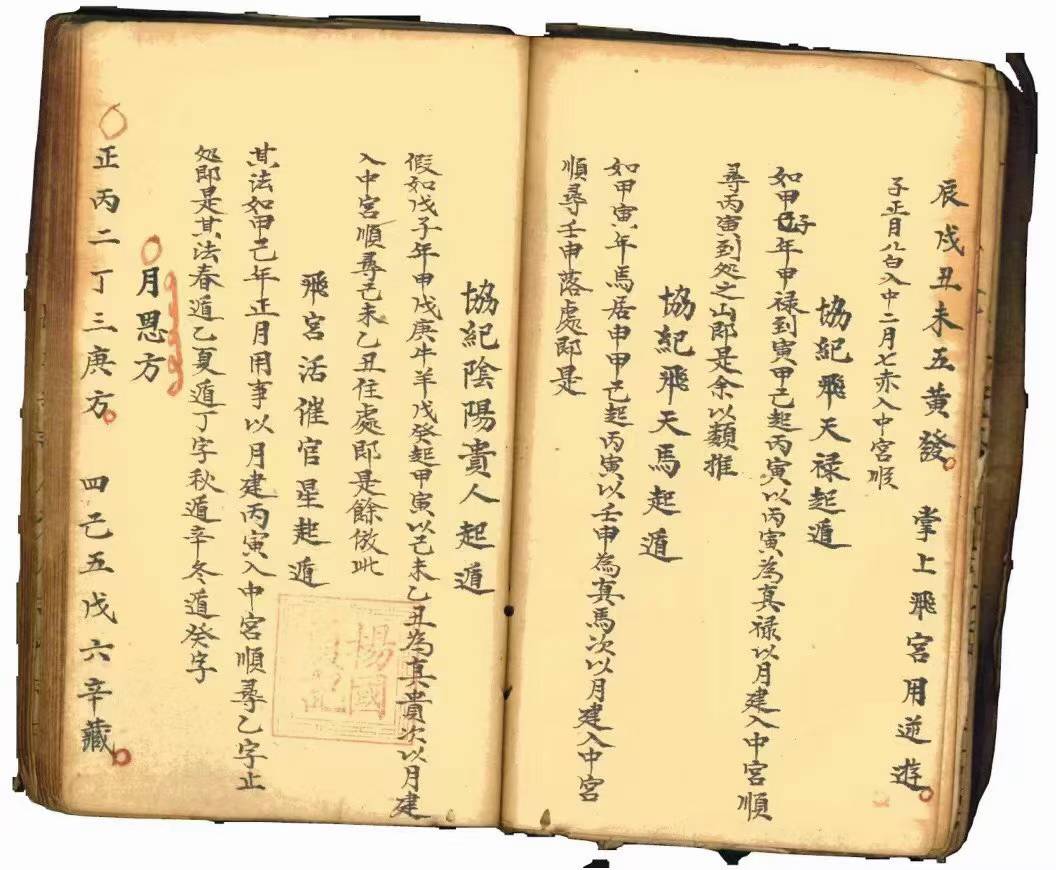 辰戌丑未五黃發 掌上飛宮用逆遊
子正月八白入中二月七赤入中宮順
協紀飛天祿起遁
如甲子年甲禄到寅甲己起丙寅以丙寅為真禄以月建入中宮順
尋丙寅到処之山即是余以類推
協紀飛天馬起遁
如甲寅年馬居申甲己起丙寅以壬申為真馬次以月建入中宮
順尋壬申落處即是
協紀陰陽貴人起遁
假如戊子年甲戊庚牛羊戊癸起甲寅以己未乙丑為真貴次以月建
入中宮順尋己未乙丑住處即是餘倣此
飛宮活催官星起遁
其法如甲己年正月用事以月建丙寅入中宮順尋乙字止
処即是其法春遁乙夏遁丁字秋遁辛冬遁癸字
月思方
正丙二丁三庚方 四己五戊六辛藏
楊國
記